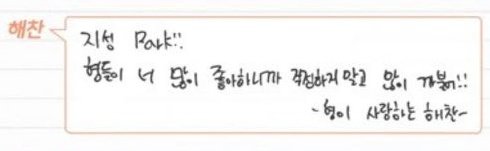 해찬
지성 Park!!
형들이 너 많이 좋아하니까 걱정하지 말고 많이 까불어!!
-형이 사랑하는 해찬-